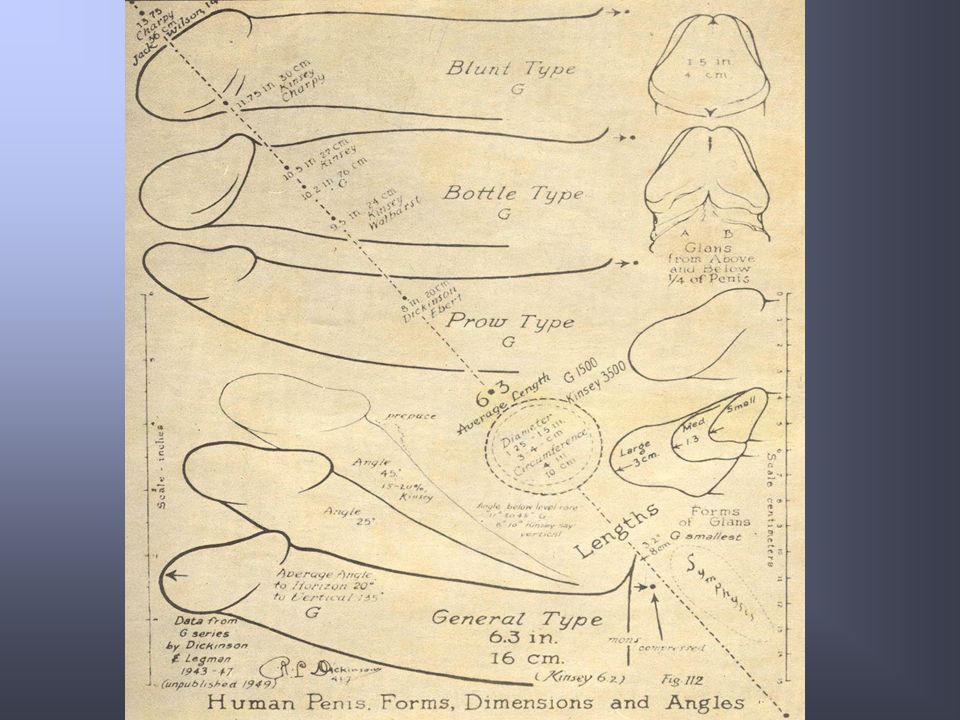 13.75
Charpy
36 cm
Jack Wilson, 14
11.75 in. 30 cm
Kinsey
Charpy
Blunt Type
G
1.5 in
4 cm
10.5 in 27 cm
Kinsey
10.2 in. 26 cm
G
9.5 in 24 cm
Kinsey
Walbarst
Bottle Type
G
A B
Glans
from Above
and Below
1/4 of Penis
8 in. 20 cm
Dickinson
Ebert
Prow Type
G
6.3
Average Length
G 1500
Kinsey 3500
Diameter
1.25 - 1.5 in.
3 - 4 cm
Circumference
4 in
10 cm
prepuce
Angle
45°
15-20%
Kinsey
Angle
25°
Angle below level rare
G
Kinsey say
vertical
Small
Med
1.3
Large
G
3 cm.
Forms
of Glans
G smallest
Scale - inches
Scale centimeters
Lengths
3.2"
8 cm
Average Angle
to Horizon 20°
to Vertical 135°
G
General Type
6.3 in.
16 cm.
(Kinsey 6.2)
mons
compressed
Data from
G series
by Dickinson
& Legman
1943-47
(unpublished 1949)
R. L. Dickinson
Fig. 112
Human Penis. Forms, Dimensions and Angles